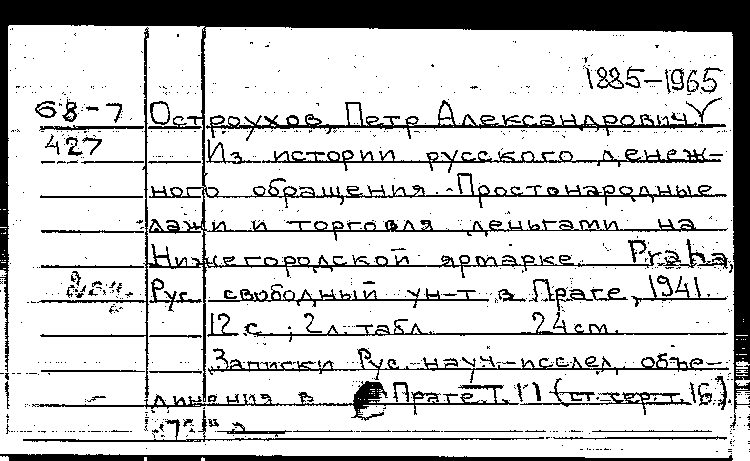 1885-1965
68-7 Остроухов, Петр Александрович
427 Из истории русского денеж-
ного обращения. Простонародные
лажи и торговля деньгами на
Нижегородской ярмарке. Praha,
Рус. свободный ун-т в Праге, 1941.
12 с.; 2 л. табл. 24 cm.
Записки Рус. науч.-исслед. объе-
динения в Праге. Т. 11 (ст. сер. т. 16).